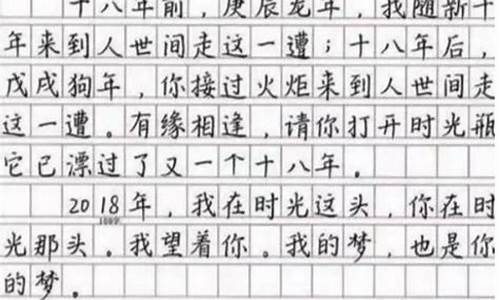 十八年前，庚辰龙年，我随新十
年来到人世间走这一遭；十八年后，
戊戌狗年，你接过火炬来到人世间走
这一遭。有缘相逢，请你打开时光瓶
它已漂过了又一个十八年。
2018年，我在时光这头，你在时
光那头。我望着你。我的梦，也是你
的梦。